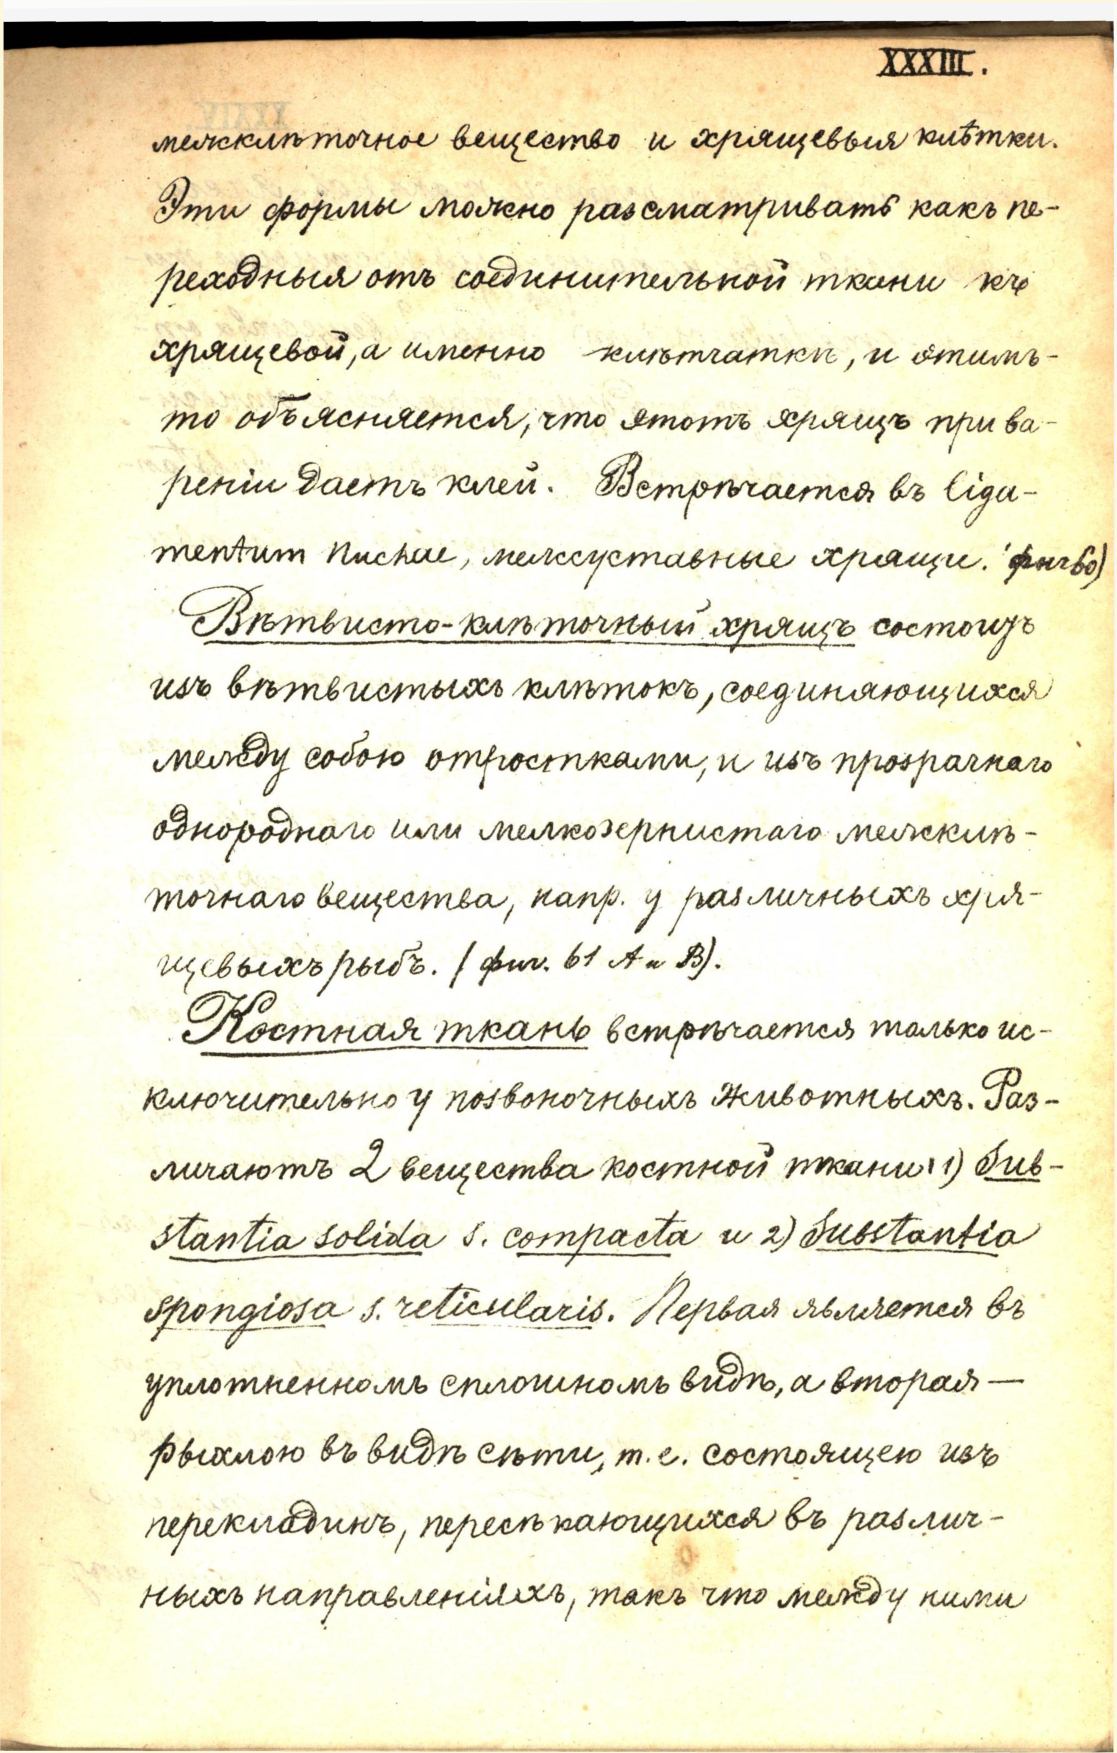 XXXIII.
межклѣточное вещество и хрящевыя клѣтки.
Эти формы можно разсматривать какъ пе-
реходныя отъ соединительной ткани къ
хрящевой, а именно клѣтчатки, и этимъ-
то объясняется, что этотъ хрящъ при ва-
реніи даетъ клей. Встрѣчается въ liga-
mentum nuchae, межсуставные хрящи. (фиг 60)
Вѣтвисто-клѣточный хрящъ состоитъ
изъ вѣтвистыхъ клѣтокъ, соединяющихся
между собою отростками, и изъ прозрачнаго
однороднаго или мелкозернистаго межклѣ-
точнаго вещества, напр. у различныхъ хря-
щевыхъ рыбъ. (фиг. 61 А и В).
Костная ткань встрѣчается только ис-
ключительно у позвоночныхъ животныхъ. Раз-
личаютъ 2 вещества костной ткани: 1) Sub-
stantia solida s. compacta и 2) Substantia
spongiosa s. reticularis. Первая является въ
уплотненномъ сплошномъ видѣ, а вторая —
рыхлою въ видѣ сѣти, т.е. состоящею изъ
перекладинъ, пересѣкающихся въ различ-
ныхъ направленіяхъ, такъ что между ними